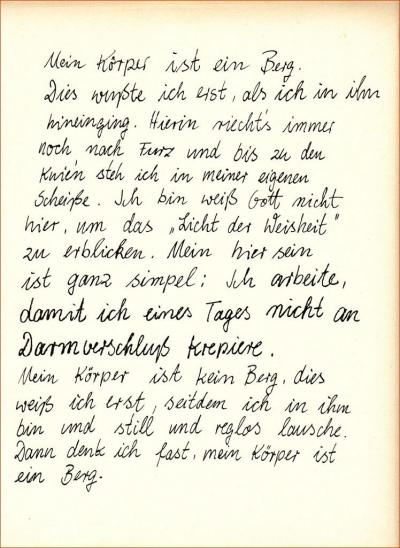 Mein Körper ist ein Berg.
Dies wußte ich erst, als ich in ihn
hineinging. Hierin riecht's immer
noch nach Furz und bis zu den
Knie'n steh ich in meiner eigenen
Scheiße. Ich bin weiß Gott nicht
hier, um das „Licht der Weisheit"
zu erblicken. Mein hier sein
ist ganz simpel: Ich arbeite,
damit ich eines Tages nicht an
Darmverschluß krepiere.
Mein Körper ist kein Berg, dies
weiß ich erst, seitdem ich in ihm
bin und still und reglos lausche.
Dann denk ich fast, mein Körper ist
ein Berg.